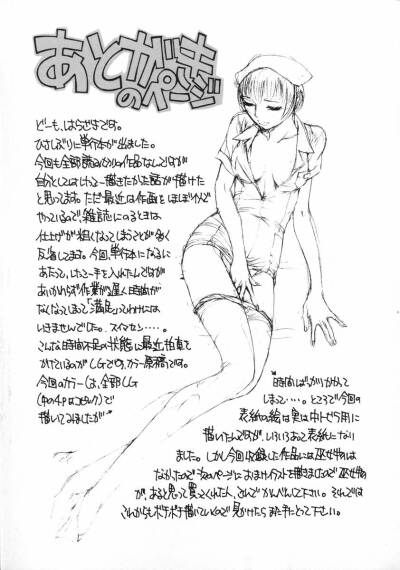 あとがき
のページ
どーも、はらざきです。
ひさしぶりに単行本が出ました。
今回も全部読みきりの作品なんですが
自分としてはけっこー描きたかった話が描けた
と思ってます。ただ最近は作画をほぼ1人で
やっているので、雑誌にのるときは
仕上げが粗くなってしまうことが多く
反省してます。今回、単行本になるに
あたって、けっこー手を入れたんですが
あいかわらず作業が遅く時間が
なくなってしまって「満足」ってわけには
いきませんでした。スイマセン…。
こんな時間不足の状態に最近拍車を
かけているのがCGです、カラー原稿です。
今回のカラーは、全部CG
(中の4Pはコピック)で
描いてみましたが
時間ばっかりかかって
しまって…。ところで今回の
表紙の絵は実は中トビラ用に
描いたんですが、いろいろあって表紙になり
ました。しかし今回収録した作品には巫女物は
なかったので次のページにおまけイラストを描きましたので巫女物
が、あると思って買ってくれた人、これでかんべんして下さい。それでは
これからもボチボチ描いていくので見かけたらまた手にとって下さい。